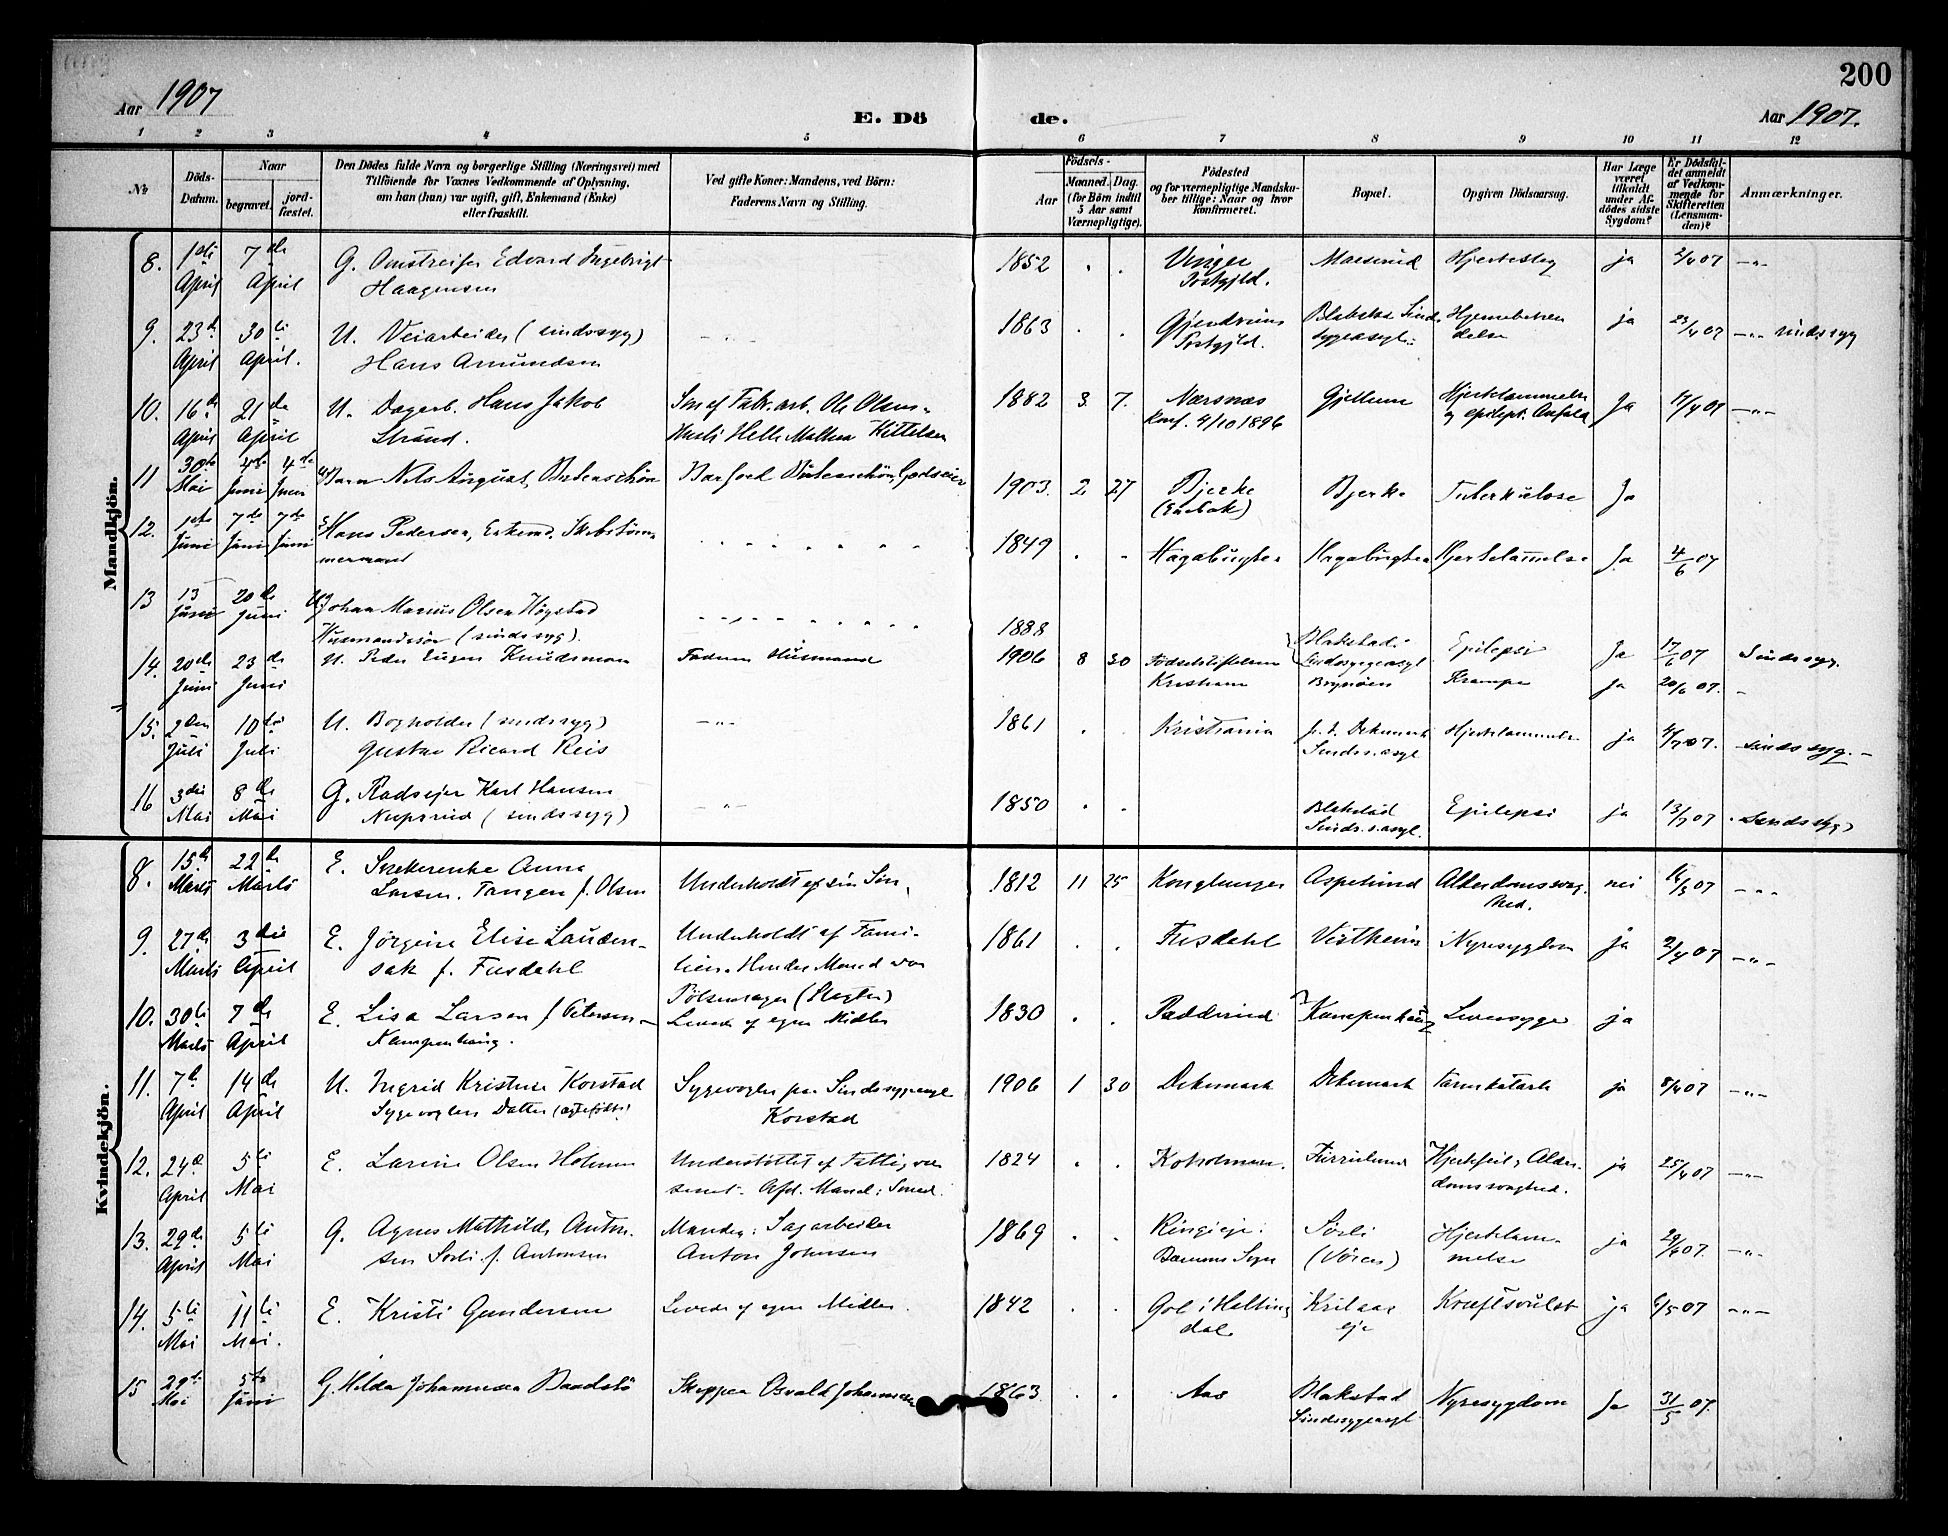 200
Aar 1907
E. Dö
de.
Aar 1907.
1 2 3 4 5 6 7 8 9 10 11 12
No
Döds-
Datum.
Naar
begravet.
jord-
fæstet.
Den Dödes fulde Navn og borgerlige Stilling (Næringsvei) med
Tilföiende for Voxnes Vedkommende af Oplysning,
om han (hun) var ugift, gift, Enkemand (Enke)
eller fraskilt.
Ved gifte Koner: Mandens, ved Börn:
Faderens Navn og Stilling.
Födsels-
Aar
Maaned.
Dag.
(for Börn indtil
5 Aar samt
Værnepligtige).
Födested
og for værnepligtige Mandska-
ber tillige: Naar og hvor
konfirmeret.
Bopæl.
Opgiven Dödsaarsag.
Har Læge
været
tilkaldt
under Af-
dödes sidste
Sygdom?
Er Dödsfal-
det anmeldt
af Vedkom-
mende for
Skifteretten
(Lensman-
den)?
Anmærkninger.
Mandkjön.
8. 1ste April 7de April G. Omstreifer Edvard Ingebrigt
Haagensen
1852 Vinger Prstgjld. Hjerteslag ja 2/4 07 —"—
9. 23de April 30te April. U. Veiarbeider (sindssyg)
Hans Amundsen
1863 Gjerdrum Prstgjld. ja 23/4 07 —"— sindssyg
10. 16de April 21de April U. Dagarb. Hans Jakob
Strand.
Søn af Fabr. arb. Ole Olsen
Kittelsen
1882 3. 7. Nærsnæs
Konf. 4/10 1896 Gjellum Hjertelammelse
og epilept. Anfald Ja 17/4 07 —"—
11 30te Mai 4de Juni 4de Juni Barn Nils August Butenschön Butenschön, Godseier
1903. 2. 27 Bjerke
(Enebak) Bjerke Tuberkulose Ja
12. 1ste Juni 7de Juni 7de Juni Hans Pedersen, Enkemd, Skibstøm-
mermand
1849 Hagabugten Hagabugten Hjertelammelse Ja 4/6 07
13 13 Juni 20de Juni U. Johan Marius Olsen Høgstad
Husmandssøn (sindssyg).
1888 Blakstad
Sindssygeasyl Epilepsi Ja 17/6 07 Sindssyg.
14. 20de Juni 23de Juni U. Peder Eugen Knudsmoen Husmand
1906 8 30 Fødselsstiftelsen
Kristiania Krampe Ja 20/6 07.
15. 2den Juli 10de Juli U. Bogholder (sindssyg)
Gustav Ricard Reis
—"—
1861 Kristiania Dikemark
Sindss.asyl Hjertelammelse ja 4/7 07. sindssyg.
16 3die Mai 8de Mai G. Karl Hansen
(sindssyg)
1850 Blakstad
Sindss.asyl. Epilepsi ja 13/7 07 Sindssyg
Kvindekjön.
8. 15de Marts 22de Marts E. Anna
Larsen Tangen f. Olsen
Underholdt af sin Søn,
1812 11 25 Asperud Alderdomssvag-
hed. nei 16/3 07
9. 27de Marts 3die April E. Jørgine Elise Lauden-
sak f. Fusdahl
Underholdt af Fami-
lien. Hendes Mand var
Pølsemager (Slagter)
1861 Fusdahl Vestheim Nyresygdom ja 2/4 07 —"—
10. 30te Marts 7de April E. Lisa Larsen f Petersen
Kampenhaug.
Levede af egne Midler
1830 Padderud Kampenhaug Leversyge ja
11. 7de April 14de April U. Ingrid Kristine Korstad
Sygevogters Datter (ægtefødt)
Sygevogter paa Sindssygeasyl
Korstad
1906 1 30 Dikemark Dikemark Tarmkatarh ja 8/4 07 —"—
12. 24de April 5te Mai E. Larine Olsen Holmen
Understöttet af Fattigvæ-
senet. Afd. Mand: Smed.
1824 Koholmen. Furulund Hjertefeil, Alder-
domssvaghed. ja 25/4 07 —"—
13. 29de April 5te Mai G. Agnes Mathilde Anton-
sen Sørli f. Antonsen
Manden: Sagarbeider
Anton Johnsen
1869 Ringieje
Bærums Sogn Sørli Hjertelam-
melse ja 29/4 07. —"—
14. 5te Mai 11te Mai. E. Kristi Gundersen
Levede af egne Midler.
1842 Gol i Halling-
dal. eje Kræftsvulst ja 6/5 07 —"—
15 29de Mai 5te Juni G. Hilda Johannesen Baadstö
Skipper Osvald Johannesen
1863. Aas Blakstad
Sindssygeasyl Nyresygdom Ja 31/5 07.